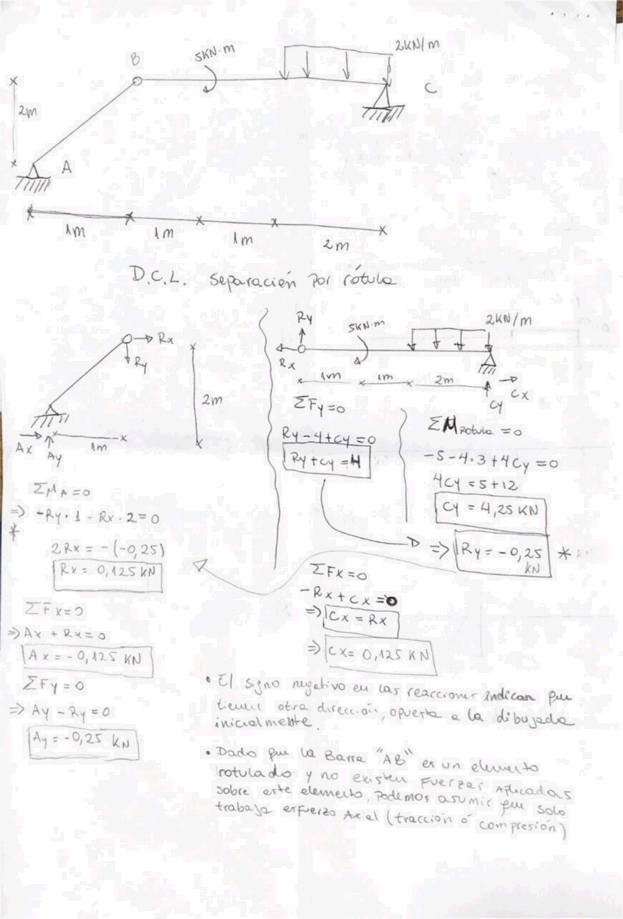 B
5KN·m
2KN/m
C
2m
A
1m
1m
1m
2m
D.C.L. Separación por rótula
Rx
Ry
2m
Ax
Ay
1m
ΣMA=0
⇒ -Ry·1 - Rx·2=0
*
2Rx = -(-0,25)
Rx = 0,125 KN
ΣFx=0
⇒ Ax + Rx=0
Ax = -0,125 KN
ΣFy=0
⇒ Ay - Ry=0
Ay = -0,25 KN
Ry
5KN·m
2KN/m
Rx
1m
1m
2m
Cy
Cx
ΣFy=0
Ry-4+Cy=0
Ry+Cy=4
ΣMrotula =0
-5-4·3+4Cy=0
4Cy=5+12
Cy = 4,25 KN
⇒ Ry = -0,25 KN *
ΣFx=0
-Rx+Cx=0
⇒ Cx = Rx
⇒ Cx= 0,125 KN
• El signo negativo en las reacciones indican que
tienen otra dirección, opuesta a la dibujada
inicialmente.
• Dado que la Barra "AB" es un elemento
rotulado y no existen Fuerzas Aplicadas
sobre este elemento, podemos asumir que solo
trabaja esfuerzo Axel (tracción ó compresión)